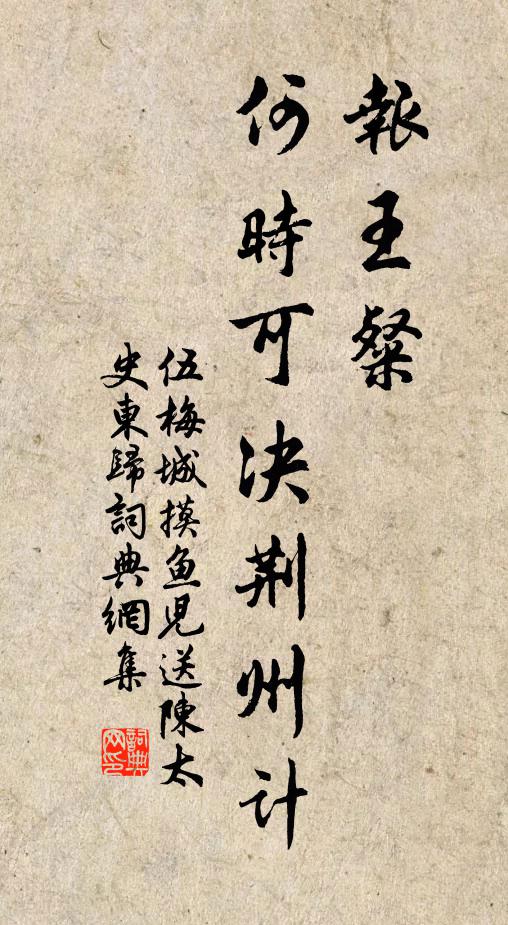 報王粲
何時可决荆州计
伍梅城摸鱼児送陳太
史東歸詞典網集
詞典
网印